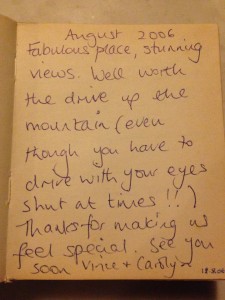 August 2006
Fabulous place, stunning
views. Well worth
the drive up the
mountain (even
though you have to
drive with your eyes
shut at times!!)
Thanks for making us
feel special. See you
soon Vince + Carolyn